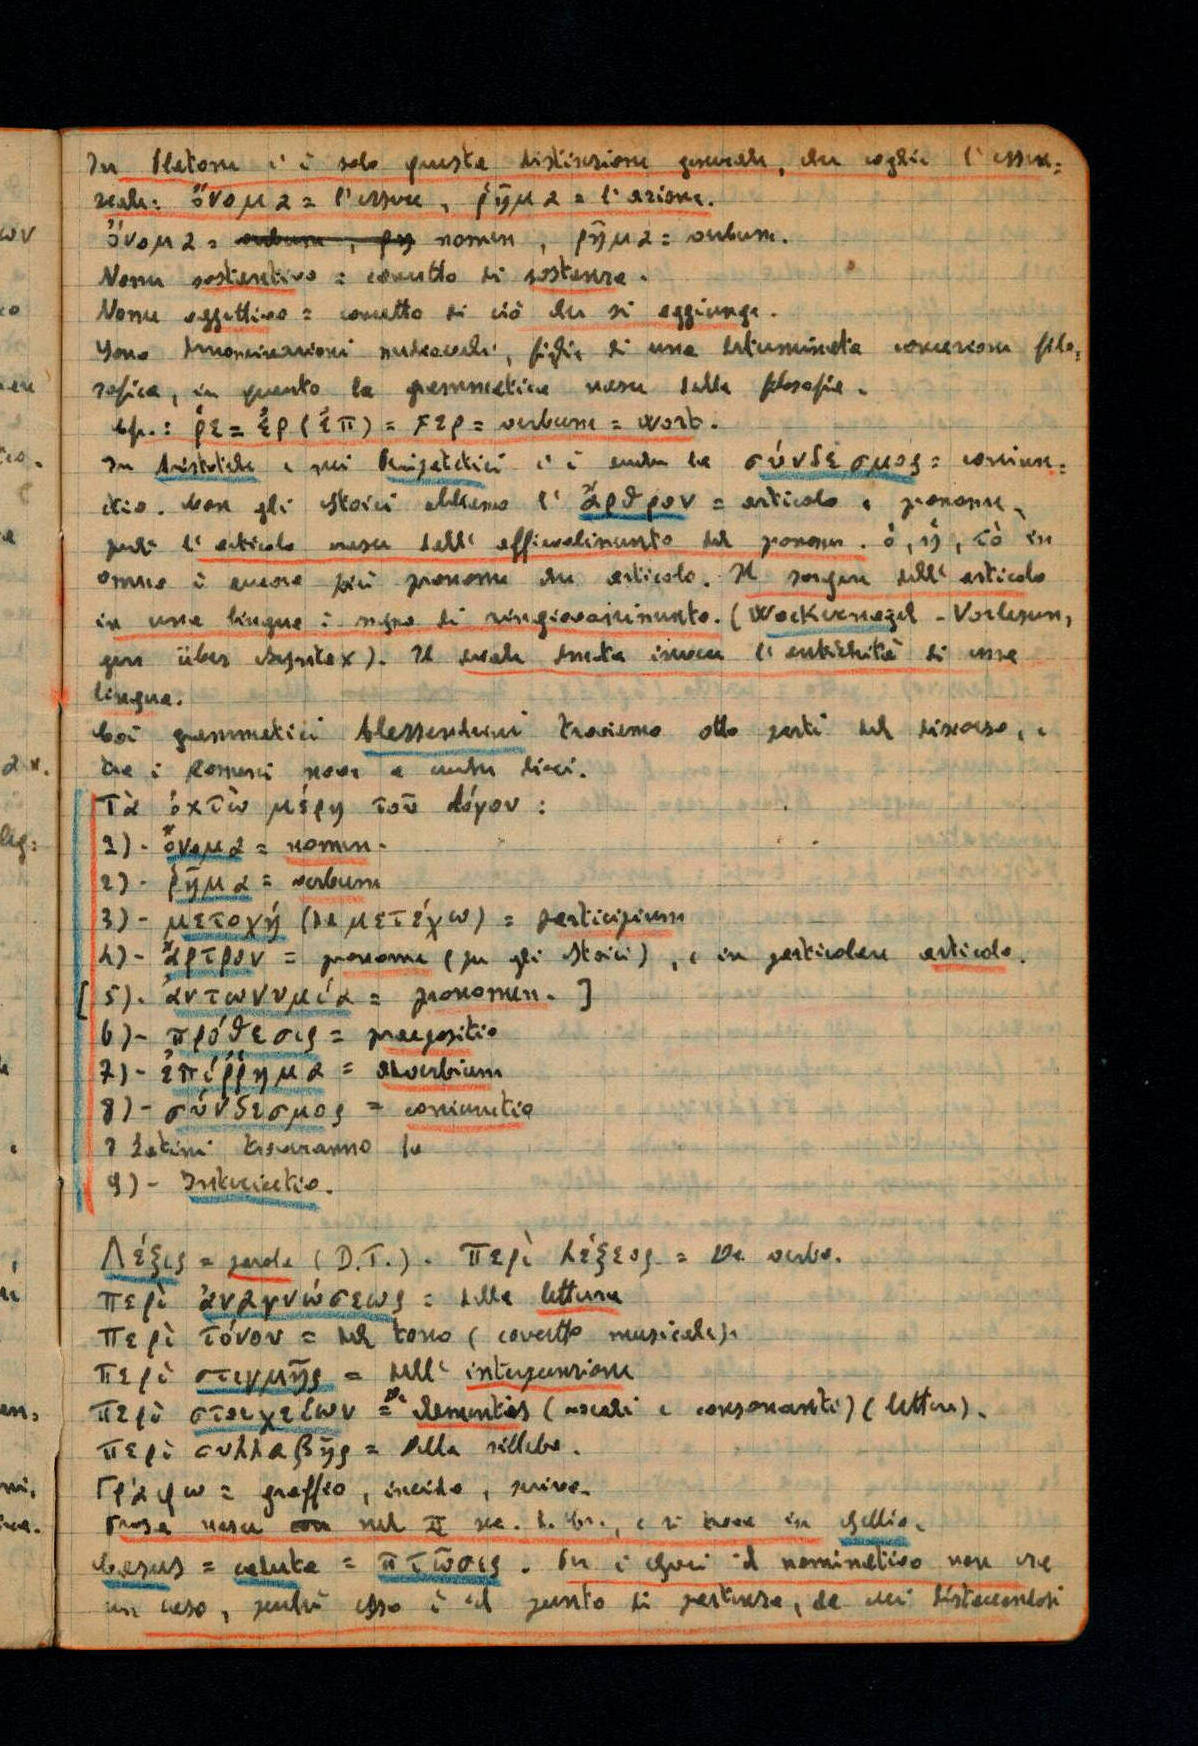 In Platone c'è solo questa distinzione generale, che coglie l'essen-
ziale: ὄνομα = l'essere, ῥῆμα = l'azione.
ὄνομα = nomen, ῥῆμα = verbum.
Nome sostantivo = concetto di sostanza.
Nome aggettivo = concetto di ciò che si aggiunge.
Sono denominazioni medioevali, figlie di una determinata concezione filo-
sofica, in quanto la grammatica nasce dalla filosofia.
Cfr.: ῥε = ἐρ (ἐπ) = Fερ = verbum = Wort.
In Aristotele e nei Peripatetici c'è anche la σύνδεσμος = coniunc-
tio. Con gli Stoici abbiamo l'ἄρθρον = articolo e pronome,
perché l'articolo nasce dall'affievolimento del pronome. ὁ, ἡ, τὸ in
Omero è ancora più pronome che articolo. Il sorgere dell'articolo
in una lingua è segno di ringiovanimento. (Wackernagel - Vorlesun-
gen über Syntax). Il duale denota invece l'antichità di una
lingua.
Coi grammatici Alessandrini troviamo otto parti del discorso, e
tra i Romani nove e anche dieci.
Τὰ ὀκτὼ μέρη τοῦ λόγου:
1) - ὄνομα = nomen.
2) - ῥῆμα = verbum
3) - μετοχή (da μετέχω) = participium
4) - ἄρτρον = pronome (per gli Stoici), e in particolare articolo.
[5) - ἀντωνυμία = pronomen.]
6) - πρόθεσις = praepositio
7) - ἐπίρρημα = adverbium
8) - σύνδεσμος = coniunctio
I Latini troveranno la
9) - Interiectio.
Λέξις = parola (D.T.). Περὶ λέξεος = De verbo.
Περὶ ἀναγνώσεως = della lettura
Περὶ τόνου = del tono (concetto musicale).
Περὶ στιγμῆς = dell'interpunzione
Περὶ στοιχείων = De elementis (vocali e consonanti) (lettere).
Περὶ συλλαβῆς = Della sillaba.
Γράφω = graffio, incido, scrivo.
Prosa nasce nel II sec. d. Cr., e si trova in Gellio.
Casus = caduta = πτῶσις. Per i Greci il nominativo non era
un caso, perché esso è il punto di partenza, da cui distaccandosi